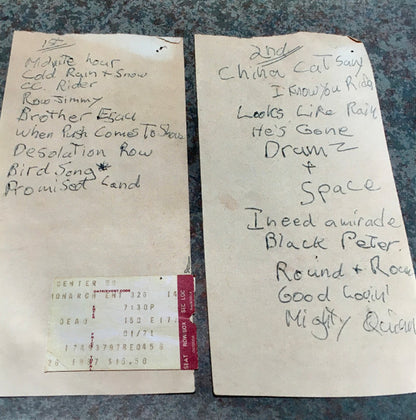 1st
Midnite hour
Cold Rain + Snow
CC Rider
Row Jimmy
Brother Esau
When Push Comes To Shove
Desolation Row
Bird Song*
Promised Land
CENTER
MONARCH ENT
7:30P
DEAD
01/71
1987 $16.50
SEAT ROW/BOX SEC LOC
2nd
China Cat Sun
I Know You Rider
Looks Like Rain
He's Gone
Drumz
+
Space
I need a miracle
Black Peter
Round + Roun
Good Lovin'
Mighty Quinn